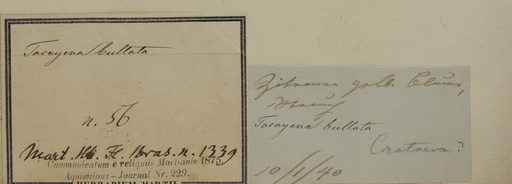 Tocoyena bullata.
n. 56
Mart. Hb. Fl. Bras. n. 1339
Communicatum e reliquis Martianis 1875
Aquisitions-Journal Nr. 229.
HERBARIUM MARTII
gelb
Tocoyena bullata
Crataeva?
10/1/40